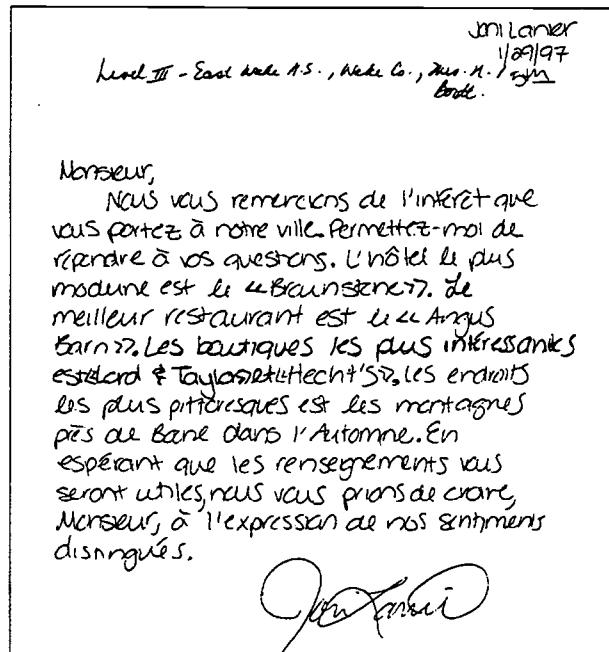 Joni Lanier
1/29/97
Level III - East Wake H.S., Wake Co., Mrs. H.
Monsieur,
Nous vous remercions de l'intérêt que
vous portez à notre ville. Permettez-moi de
répondre à vos questions. L'hôtel le plus
moderne est le «Brownstone». Le
meilleur restaurant est le «Angus
Barn». Les boutiques les plus intéressantes
est«Lord & Taylor»et«Hecht's». Les endroits
les plus pittoresques est les montagnes
près de Bane dans l'Automne. En
espérant que les renseignements vous
seront utiles, nous vous prions de croire,
Monsieur, à l'expression de nos sentiments
distingués.
Joni Lanier